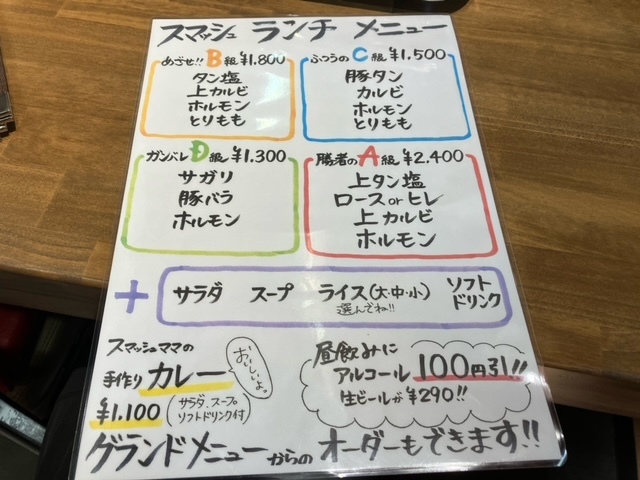 スマッシュ ランチ メニュー
めざせ!! B級 ¥1,800
タン塩
上カルビ
ホルモン
とりもも
ふつうの C級 ¥1,500
豚タン
カルビ
ホルモン
とりもも
ガンバレ D級 ¥1,300
サガリ
豚バラ
ホルモン
勝者の A級 ¥2,400
上タン塩
ロース or ヒレ
上カルビ
ホルモン
+ サラダ スープ ライス(大・中・小) ソフトドリンク
選んでね!!
スマッシュママの
手作りカレー
おいしいよ。
¥1,100 (サラダ、スープ
ソフトドリンク付)
昼飲みに
アルコール 100円引!!
生ビールが ¥290!!
グランドメニューからのオーダーもできます!!